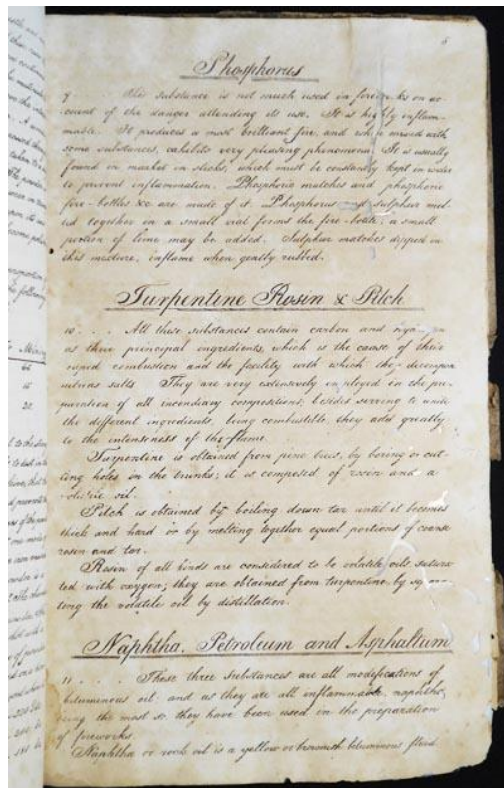 5
Phosphorus
9 . . . . This substance is not much used in fireworks on ac-
count of the danger attending its use. It is highly inflam-
mable. It produces a most brilliant fire, and when mixed with
some substances, exhibits very pleasing phenomena. It is usually
found in market in sticks, which must be constantly kept in water
to prevent inflammation. Phosphoric matches and phosphoric
fire-bottles &c are made of it. Phosphorus and sulphur mel-
ted together in a small vial forms the fire-bottle; a small
portion of lime may be added. Sulphur matches dipped in
this mixture, inflame when gently rubbed.
Turpentine Rosin & Pitch
10 . . . . All these substances contain carbon and
as their principal ingredients, which is the cause of their
rapid combustion and the facility with which they decompose
nitrous salts. They are very extensively employed in the pre-
paration of all incendiary compositions; besides serving to unite
the different ingredients, being combustible, they add greatly
to the intenseness of the flame.
Turpentine is obtained from pine trees, by boring or cut-
ting holes in the trunks; it is composed of rosin and a
volatile oil.
Pitch is obtained by boiling down tar until it becomes
thick and hard or by melting together equal portions of coarse
rosin and tar.
Rosin of all kinds are considered to be volatile oils satura-
ted with oxygen; they are obtained from turpentine by separa-
ting the volatile oil by distillation.
Naphtha, Petroleum and Asphaltum
11 . . . . These three substances are all modifications of
bituminous oil and as they are all inflammable, naphtha,
being the most so, they have been used in the preparation
of fireworks.
Naphtha or rock oil is a yellow or brownish bituminous fluid